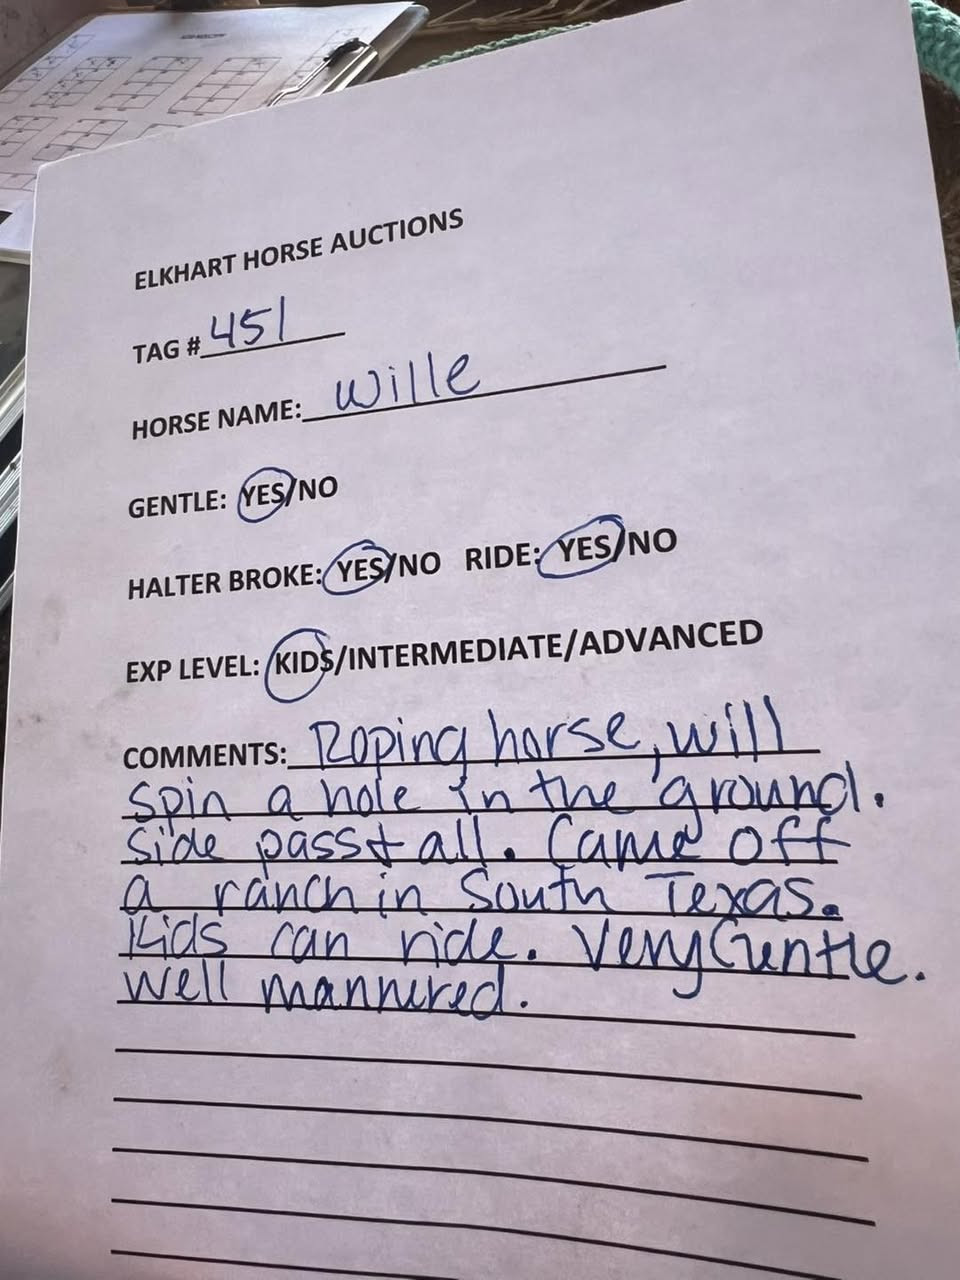 ELKHART HORSE AUCTIONS
TAG # 451
HORSE NAME: Wille
GENTLE: YES/NO
HALTER BROKE: YES/NO RIDE: YES/NO
EXP LEVEL: KIDS/INTERMEDIATE/ADVANCED
COMMENTS: Roping horse, will
spin a hole in the ground.
Side pass & all. Came off
a ranch in South Texas.
Kids can ride. Very Guntle.
Well mannered.